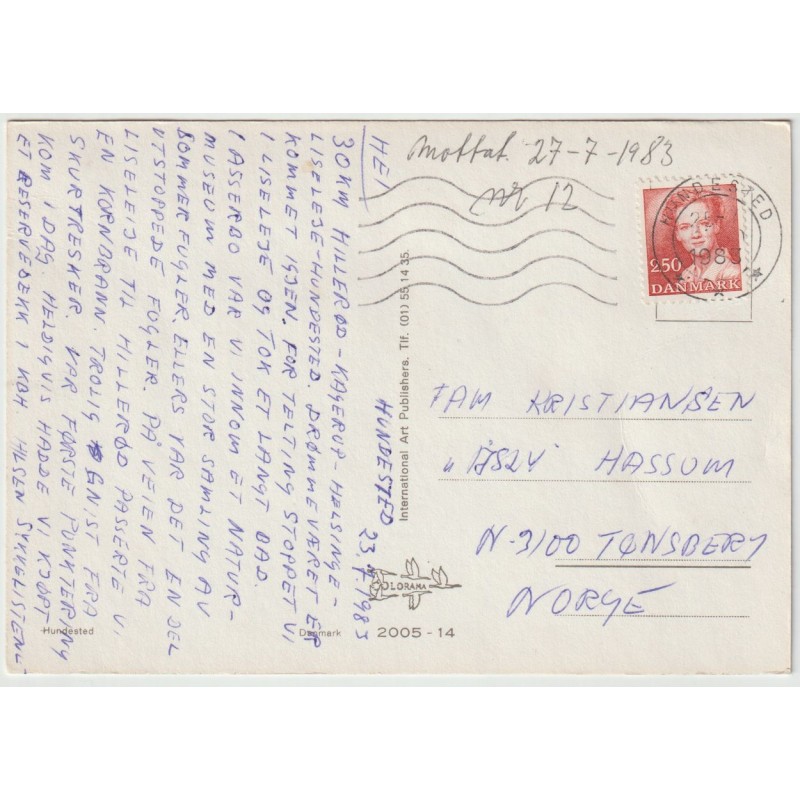 HUNDESTED 23.7.1983
HEI
30 KM HILLERØD-KAGERUP-HELSINGE-
LISELEJE-HUNDESTED. DRØMMEVÆRET ER
KOMMET IGJEN. FØR TELTING STOPPET VI
I LISELEJE OG TOK ET LANGT BAD.
I ASSERBO VAR VI INNOM ET NATUR-
MUSEUM MED EN STOR SAMLING AV
SOMMERFUGLER. ELLERS VAR DET EN DEL
UTSTOPPEDE FUGLER. PÅ VEIEN FRA
LISELEJE TIL HILLERØD PASSERTE VI
EN KORNBRANN. TROLIG GNIST FRA
SKURTRESKER. VAR FØRSTE PUNKTERING
KOM I DAG. HELDIGVIS HADDE VI KJØPT
ET RESERVEDEKK I KBH. HILSEN SYKKELISTENE
Mottat. 27-7-1983
nr 12
HUNDESTED
1983
250
DANMARK
FAM KRISTIANSEN
HASSUM
N-3100 TØNSBERG
NORGE
International Art Publishers. Tlf. (01) 55 14 35.
COLORAMA
Hundested
Danmark
2005-14